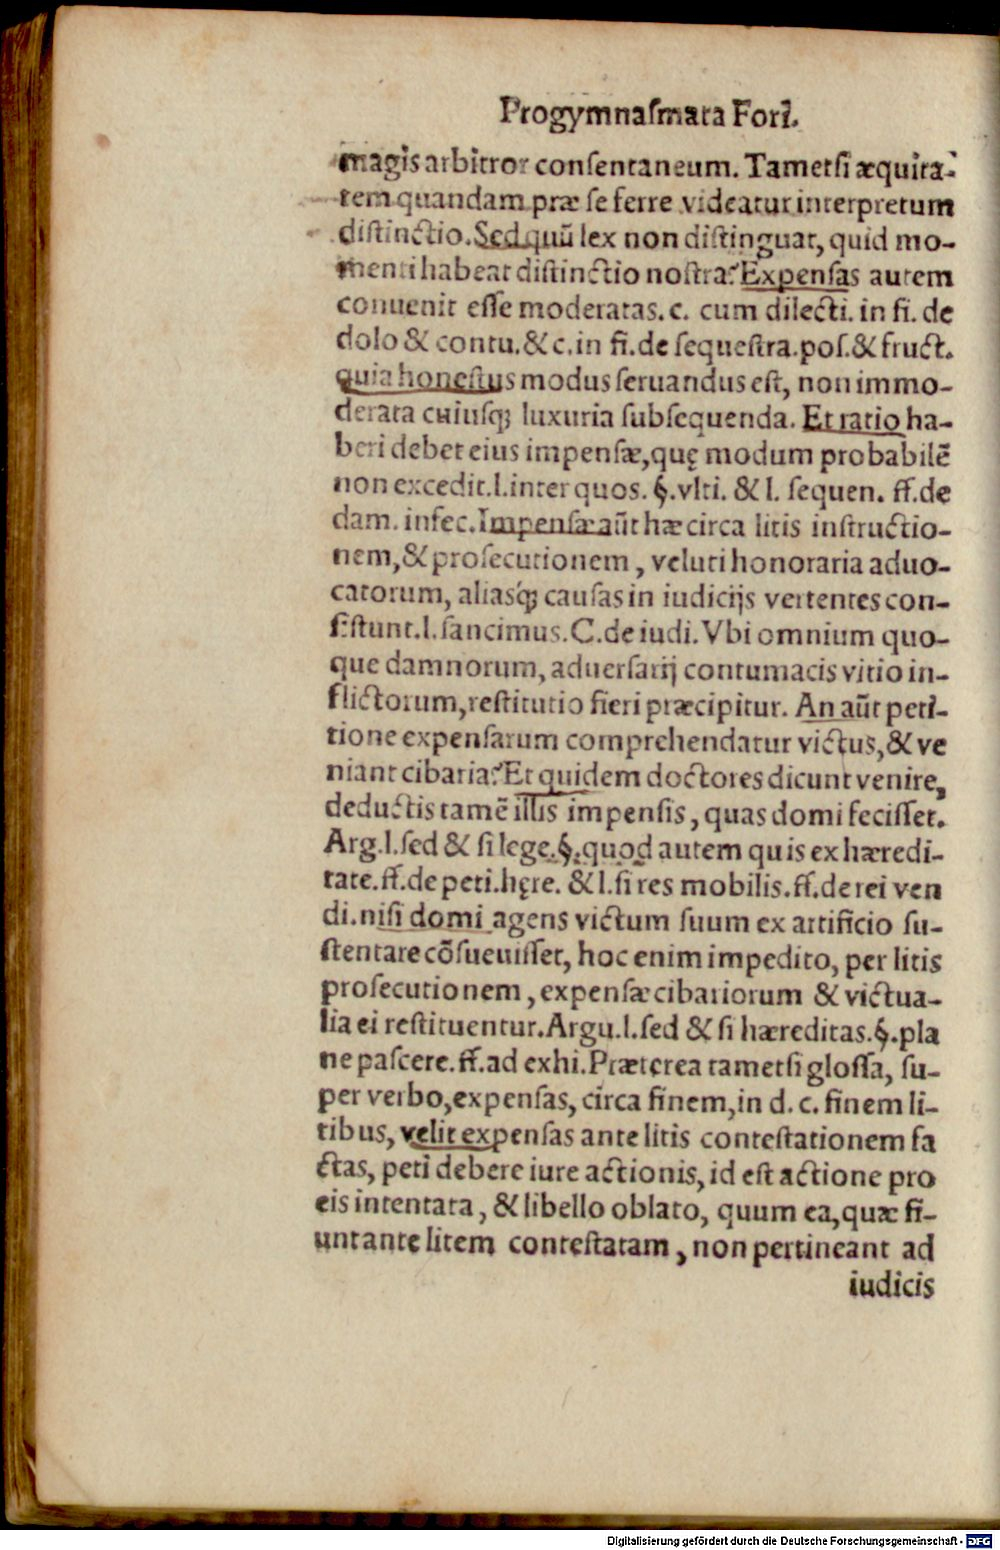 Progymnaſmata Fori.
magis arbitror conſentaneum. Tametſi æquita-
tem quandam præ ſe ferre videatur interpretum
diſtinctio. Sed quũ lex non diſtinguat, quid mo-
menti habeat diſtinctio noſtra? Expenſas autem
conuenit eſſe moderatas. c. cum dilecti. in fi. de
dolo & contu. & c. in fi. de ſequeſtra. poſ. & fruct.
quia honeſtus modus ſeruandus eſt, non immo-
derata cuiuſqꝫ luxuria ſubſequenda. Et ratio ha-
beri debet eius impenſæ, quę modum probabilẽ
non excedit. l. inter quos. §. vlti. & l. ſequen. ff. de
dam. infec. Impenſæ aũt hæ circa litis inſtructio-
nem, & proſecutionem, veluti honoraria aduo-
catorum, aliasq́ꝫ cauſas in iudicijs vertentes con-
ſiſtunt. l. ſancimus. C. de iudi. Vbi omnium quo-
que damnorum, aduerſarij contumacis vitio in-
flictorum, reſtitutio fieri præcipitur. An aũt peti-
tione expenſarum comprehendatur victus, & ve
niant cibaria? Et quidem doctores dicunt venire,
deductis tamẽ illis impenſis, quas domi feciſſet.
Arg. l. ſed & ſi lege. §. quod autem quis ex hæredi-
tate. ff. de peti. hęre. & l. ſi res mobilis. ff. de rei ven
di. niſi domi agens victum ſuum ex artificio ſu-
ſtentare cõſueuiſſet, hoc enim impedito, per litis
proſecutionem, expenſæ cibariorum & victua-
lia ei reſtituentur. Argu. l. ſed & ſi hæreditas. §. pla
ne paſcere. ff. ad exhi. Præterea tametſi gloſſa, ſu-
per verbo, expenſas, circa finem, in d. c. finem li-
tibus, velit expenſas ante litis conteſtationem fa
ctas, peti debere iure actionis, id eſt actione pro
eis intentata, & libello oblato, quum ea, quæ fi-
unt ante litem conteſtatam, non pertineant ad
iudicis
Digitalisierung gefördert durch die Deutsche Forschungsgemeinschaft - DFG